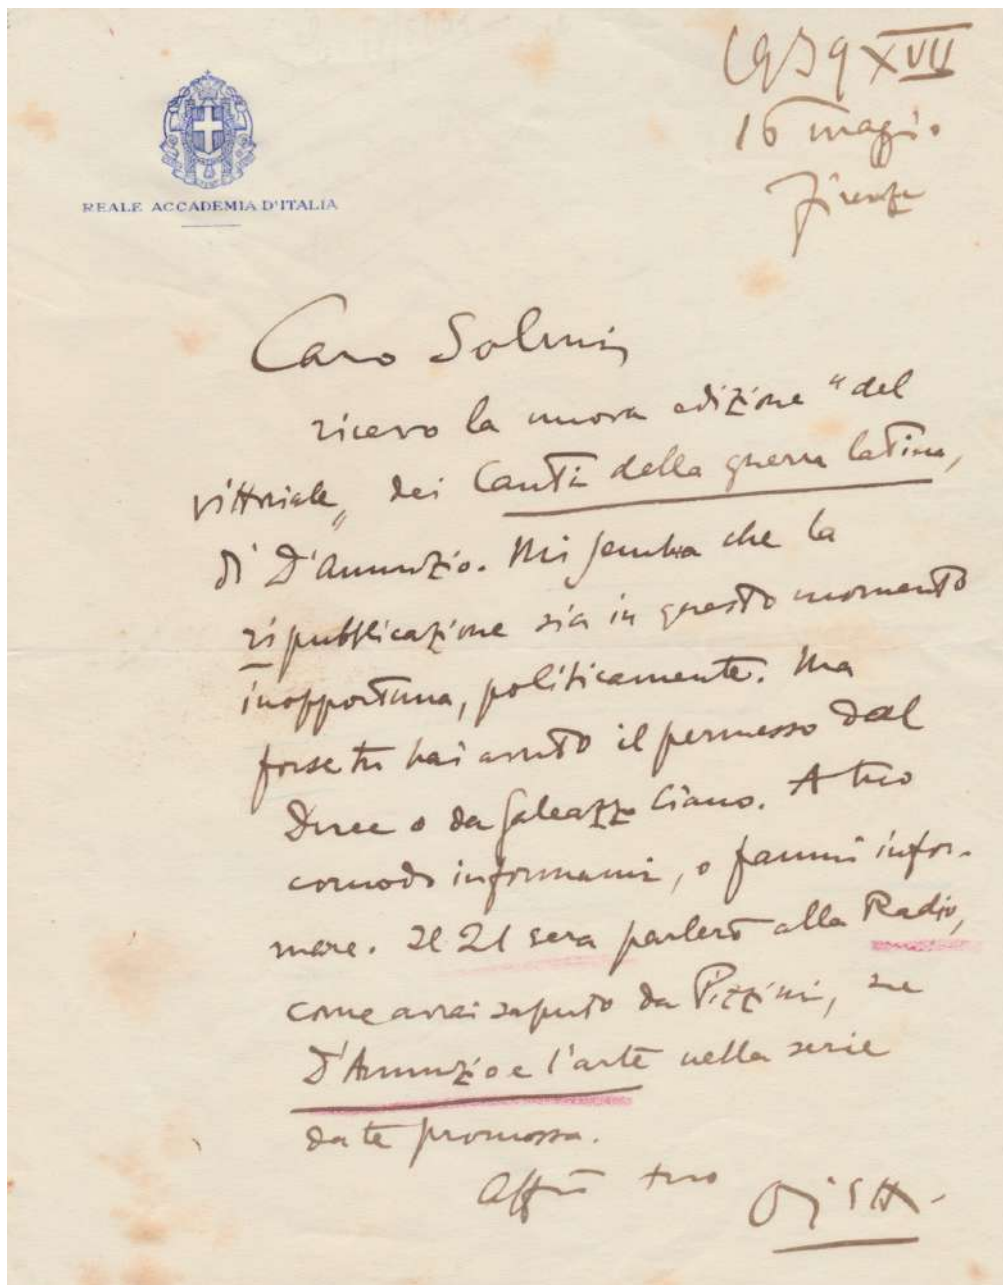 1939 XVII
16 maggio
Firenze
REALE ACCADEMIA D'ITALIA
Caro Solmi,
ricevo la nuova edizione "del
Vittoriale„ dei Canti della guerra latina,
di D'Annunzio. Mi sembra che la
ripubblicazione sia in questo momento
inopportuna, politicamente. Ma
forse tu hai avuto il permesso dal
Duce o da Galeazzo Ciano. A tuo
comodo informami, o fammi infor-
mare. Il 21 sera parlerò alla Radio,
come avrai saputo da Pizzini, su
D'Annunzio e l'arte nella serie
da te promossa.
Aff.mo tuo Ojetti